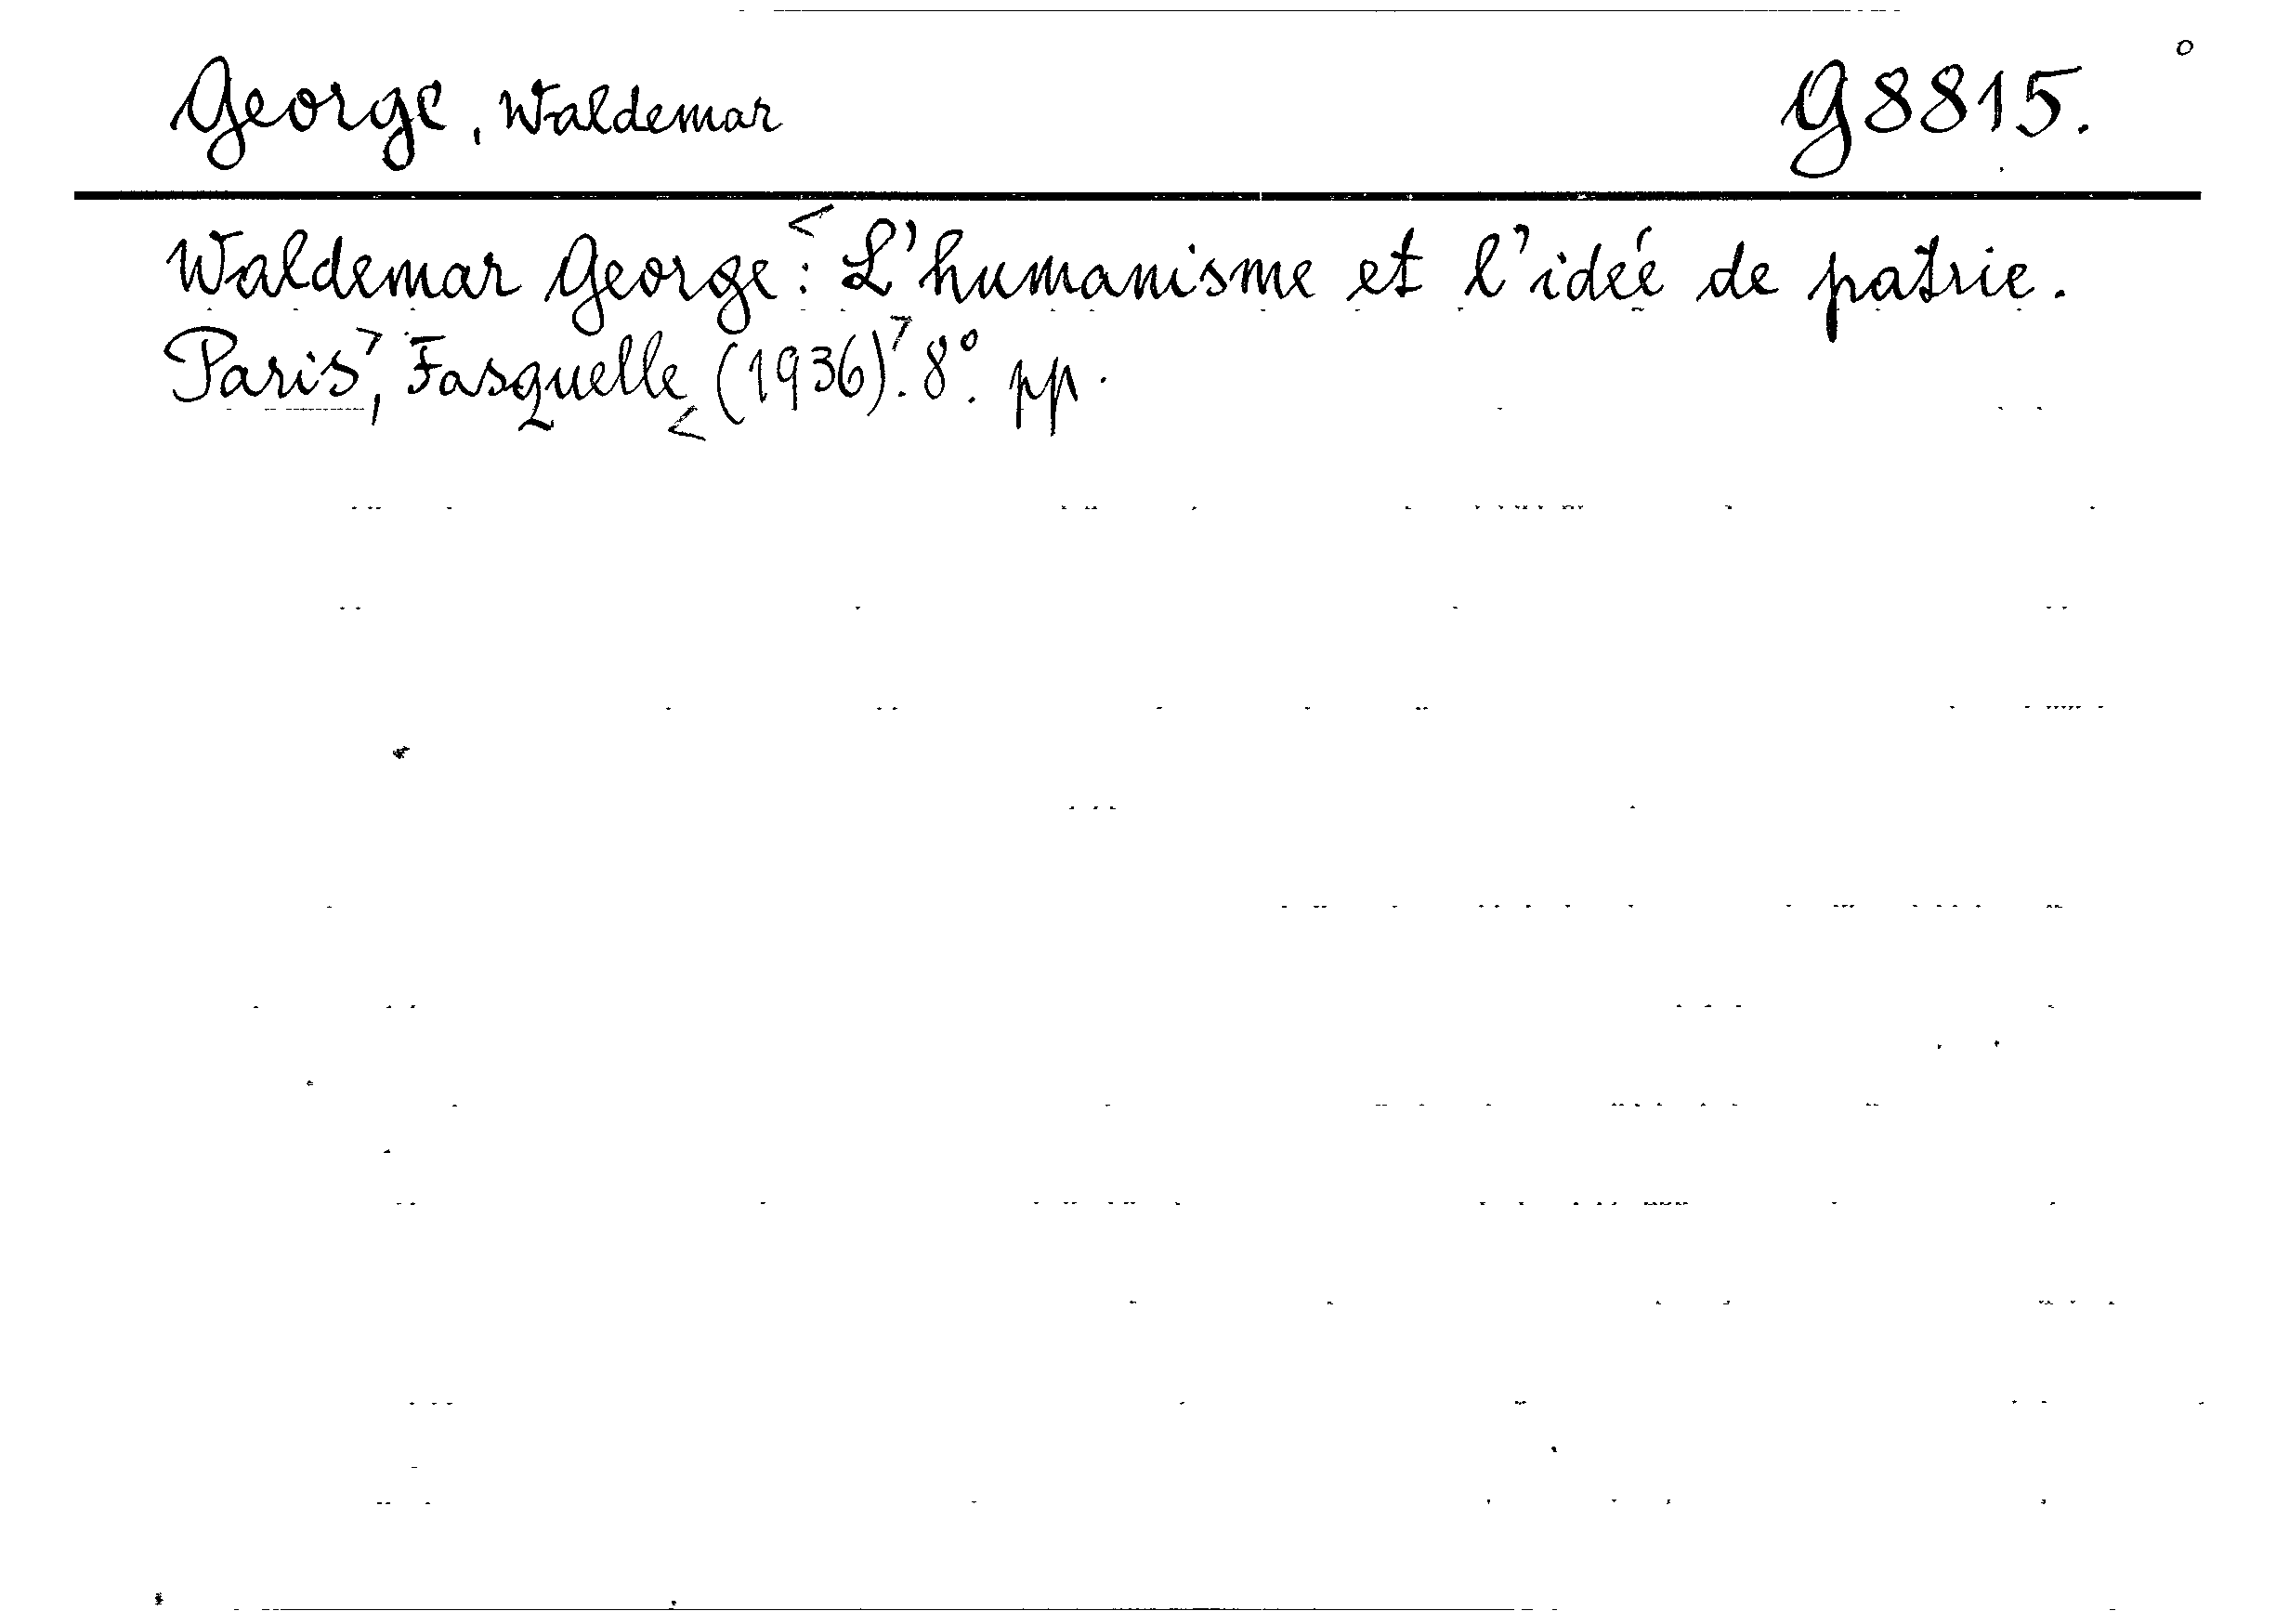 George, Waldemar G8815.
Waldemar George: L'humanisme et l'idée de patrie.
Paris, Fasquelle (1936). 8°. pp.